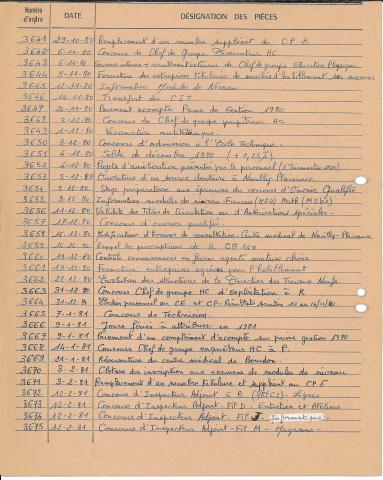 Numéro d'ordre DATE DÉSIGNATION DES PIÈCES
3641 29-10-80 Remplacement d'un membre suppléant du CP
3642 6-11-80 Concours de Chef de groupe Dessinateur HC.
3643 6-11-80 recrutement Chef de groupe Education Physique
3644 5-11-80 Fermeture des entreprises titulaires de marchés d'habillement
3645 12-11-80 Information Modules de Niveau
3646 14-11-80 Transfert du CIT
3647 Paiement acompte Prime de Gestion 1980
3648 3-12-80 Concours de Chef de groupe pupitreur HC
3649 1-12-80 Vaccination antitétanique
3650 3-12-80 Concours d'admission à l'Ecole Technique
3651 4-12-80 Solde de décembre 1980 (+1,25%)
3652 6-12-80 Projets d'amélioration présentés par le personnel
3653 5-12-80 Ouverture d'un service dentaire à Neuilly Plaisance
3654 5-12-80 Stage préparatoire aux épreuves du concours d'Ouvrier Qualifié
3655 9-12-80 Information modules de niveau - Français
3656 11-12-80 Validité des Titres de Circulation ou d'Autorisations spéciales
3657 12-12-80 Concours d'ouvrier qualifié
3658 16-12-80 Modification d'heures de consultation - Centre médical de Neuilly-Plaisance
3659 16-12-80 Rappel de prescriptions de la CG 260
3660 19-12-80
3661 19-12-80 Fermeture entreprises agréées pour l'habillement
3662 22-12-80 Evolution des structures de la Direction des Travaux Neufs
3663 31-12-80 Concours Chef de groupe HC d'exploitation à R
3664 31-12-80 Election personnel au CE et CP - Résultats
3665 7-1-81 Concours de Technicien
3666 9-1-81 Jours fériés à attribuer en 1981
3667 9-1-81 Paiement d'un complément d'acompte sur prime gestion 1980
3668 14-1-81 Concours Chef de groupe enquêteur HC à P.
3669 21-1-81 Réouverture du centre médical de Bourdon
3670 3-2-81 Clôture des inscriptions aux examens de modules de niveau
3671 3-2-81 Remplacement d'un membre titulaire et suppléant au CP 6
3672 12-2-81 Concours d'Inspecteur Adjoint à R - Lignes
3673 12-2-81 Concours d'Inspecteur Adjoint - Fil D - Entretien et Ateliers
3674 12-2-81 Concours d'Inspecteur Adjoint - Fil - Informatique
3675 12-2-81 Concours d'Inspecteur Adjoint - Fil M - Magasins